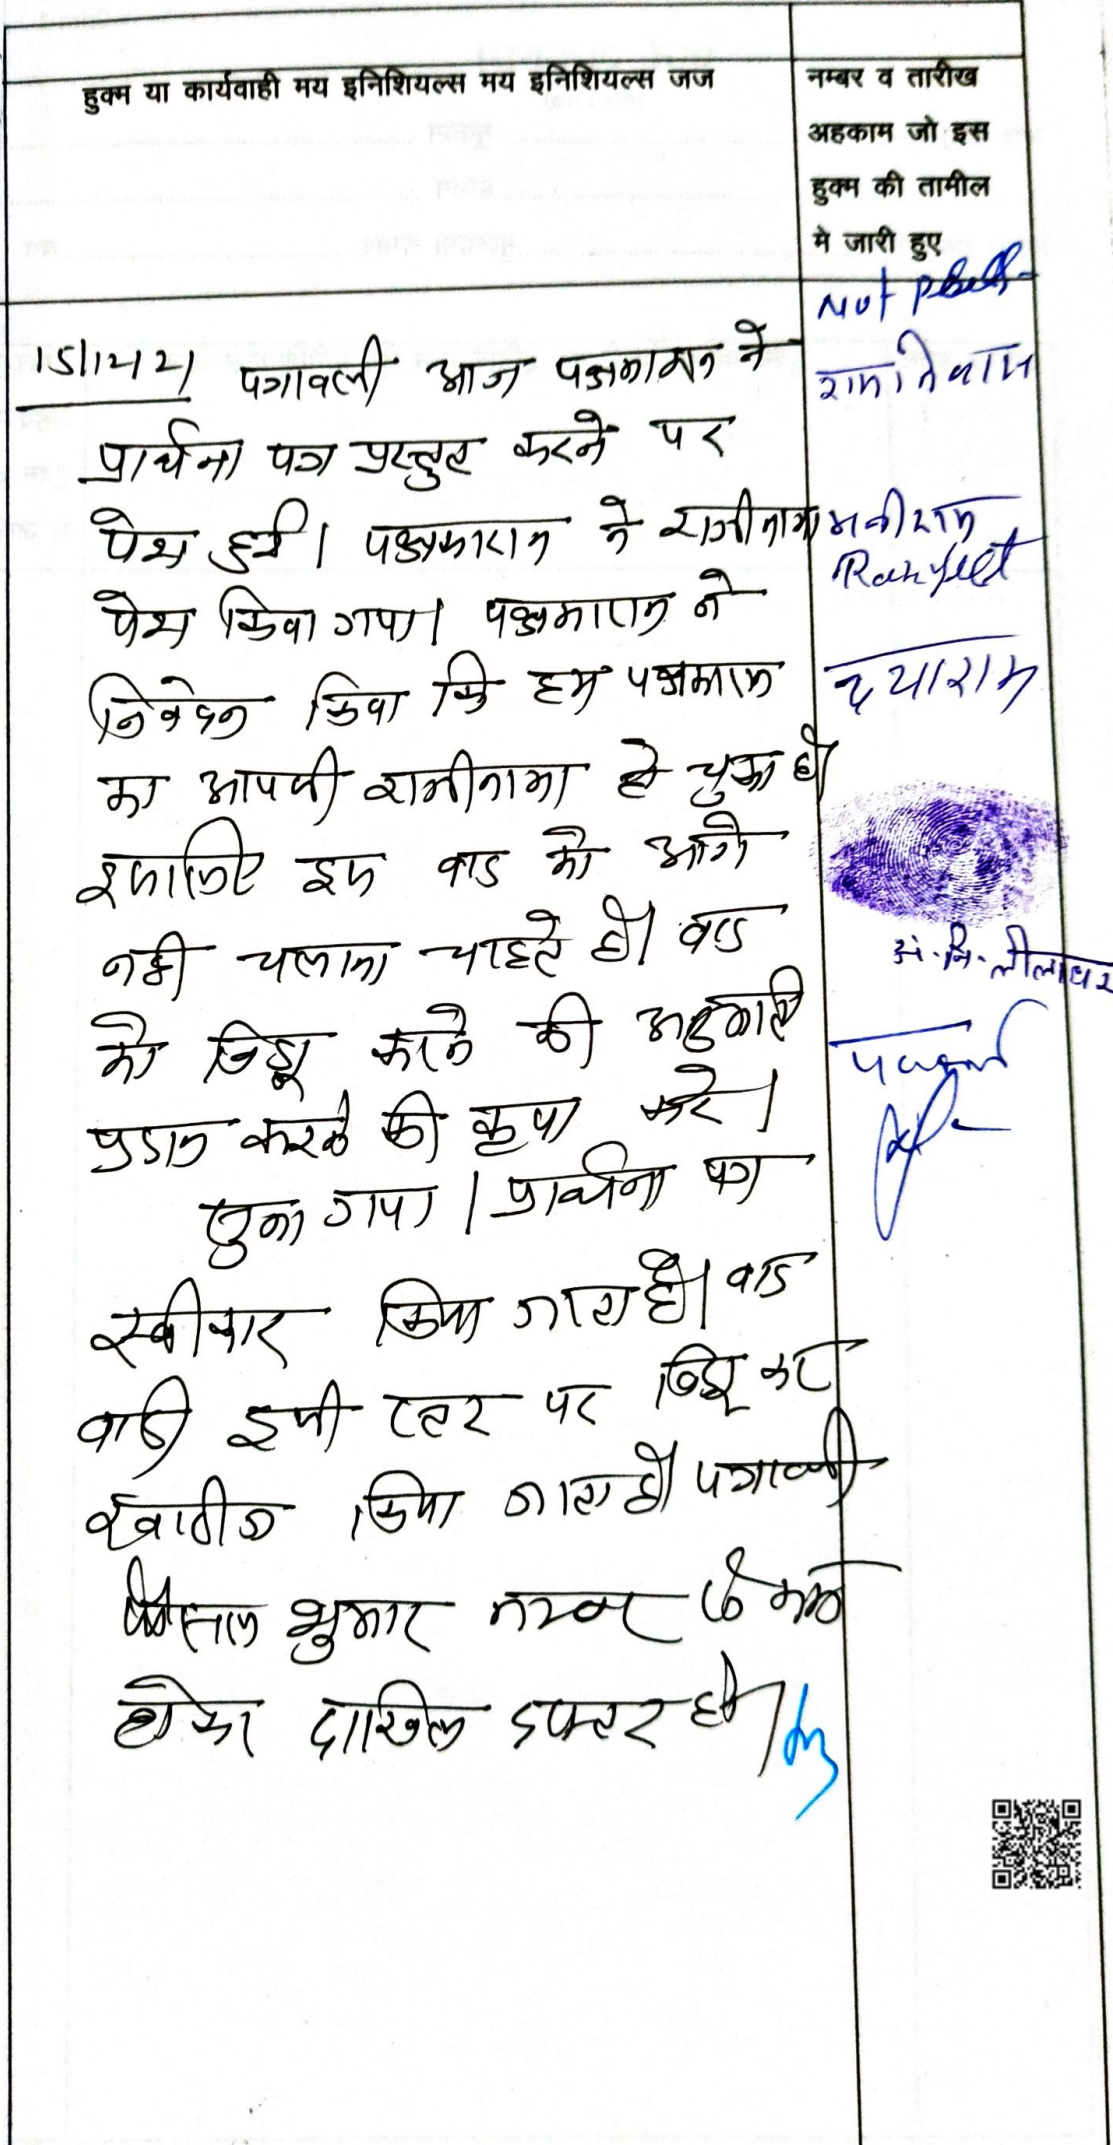 हुक्म या कार्यवाही मय इनिशियल्स मय इनिशियल्स जज
नम्बर व तारीख
अहकाम जो इस
हुक्म की तामील
मे जारी हुए
पत्रावली आज पक्षकारान ने
प्रार्थना पत्र प्रस्तुत करने पर
पेश हुई। पक्षकारान ने राजीनामा
पेश किया गया। पक्षकारान ने
निवेदन किया कि हम पक्षकारान
का आपसी राजीनामा हो चुका है
इसलिए इस वाद को आगे
नही चलाना चाहते है। वाद
को विड्रा करने की अनुमति
प्रदान करने की कृपा करे।
सुना गया। प्रार्थना पत्र
स्वीकार किया जाता है। वाद
वादी इसी स्तर पर विड्रा कर
खारीज किया जाता है। पत्रावली
फैसल शुमार नम्बर से कम
होकर दाखिल दफ्तर हो।
Not
रामनिवास
मनीराम
Ranjeet
दयाराम
अं. नि. लीलाधर